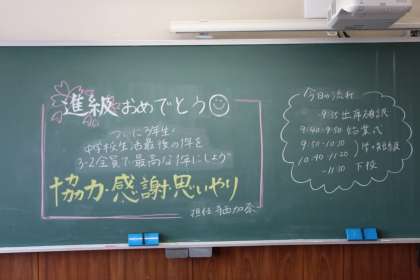 進級おめでとう
ついに3年生・
中学校生活最後の1年を
3-2全員で最高な1年にしよう
協力・感謝・思いやり
担任
今日の流れ
~9:35 出席確認
9:40~9:50 始業式
9:50~10:30
10:40~11:20
~11:30 下校